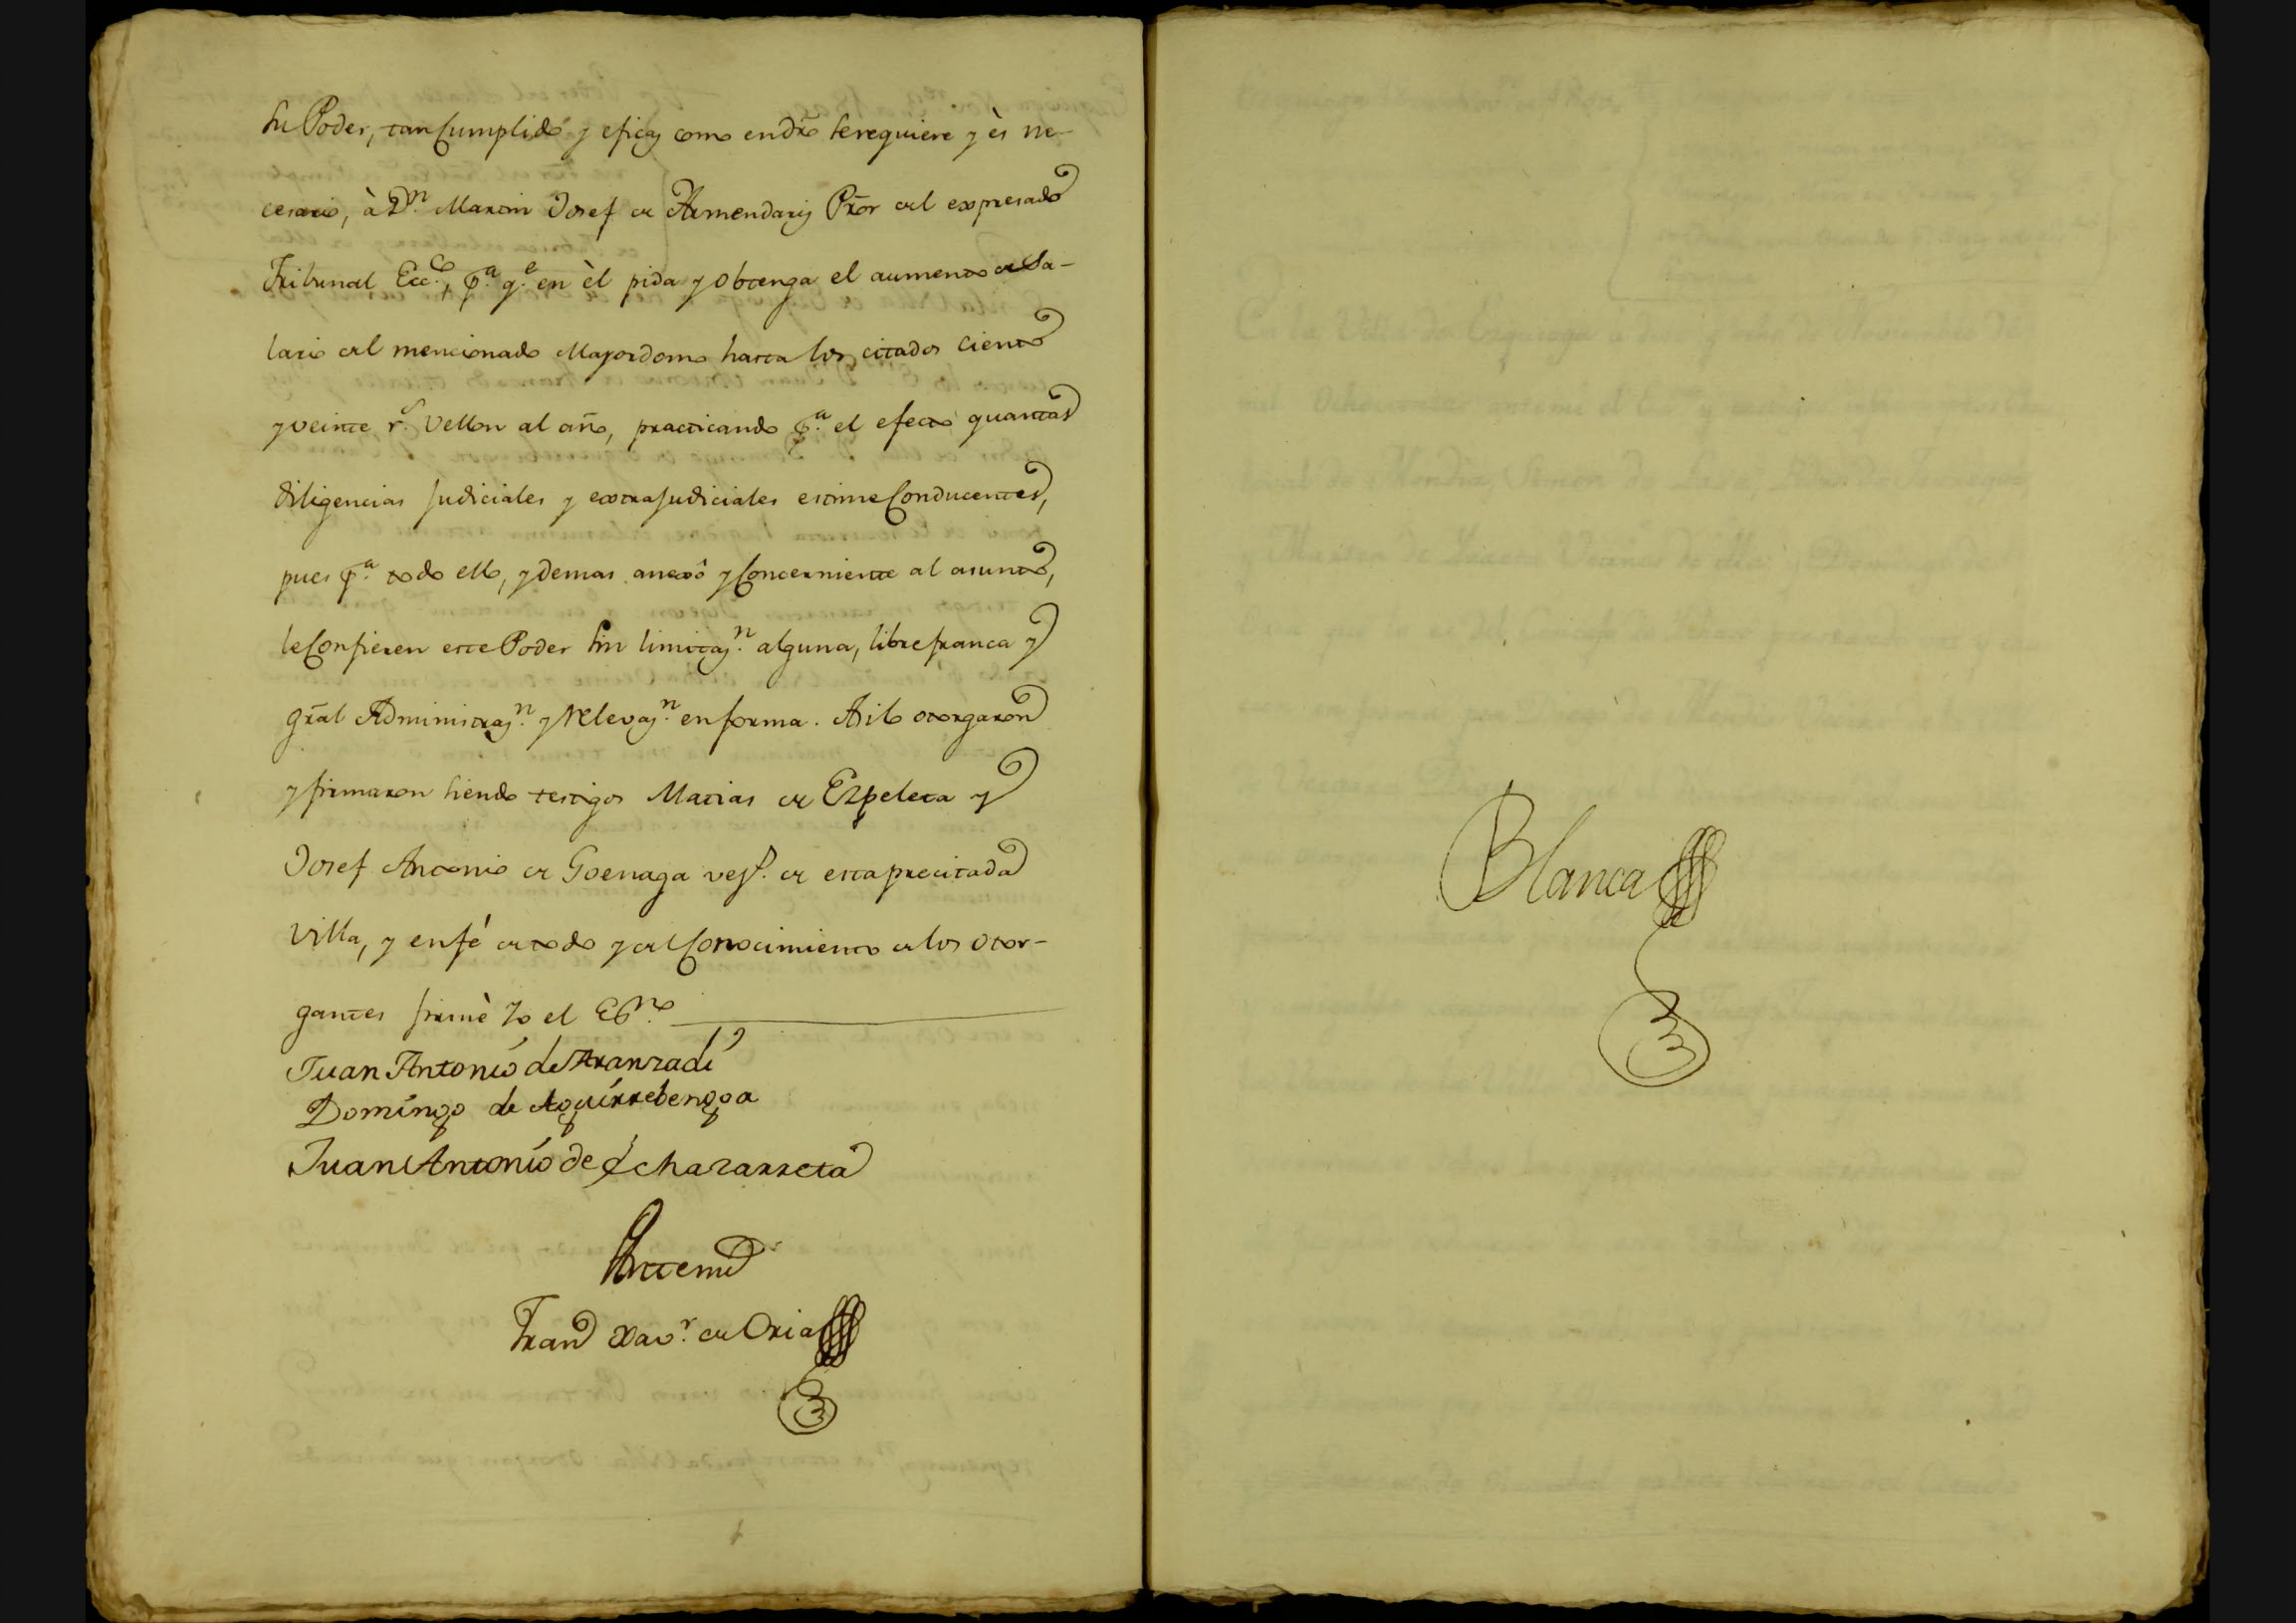 su Poder, tan Cumplido y eficaz como en dr̃o se requiere y ès ne-
cesario, à Dn. Martin Josef de Armendariz Prõr del expresado
Tribunal Ecc.co, pa. qe. en èl pida y obtenga el aumento de Sa-
lario del mencionado Mayordomo hasta los citados ciento
y veinte rs. vellon al año, practicando pa. el efecto quantas
diligencias Judiciales y extraJudiciales estime Conducentes,
pues pa. todo ello, y demas anexô y Concerniente al asunto,
le Confieren este Poder sin limitazn. alguna, libre franca y
grãl Administrazn. y relevazn. en forma. Asi lo otorgaron
y firmaron siendo testigos Matias de Ezpeleta y
Josef Antonio de Goenaga vezs. de esta precitada
Villa, y en fé de todo y del Conocimiento de los otor-
gantes firmè Yo el Esno.
Juan Antonio de Aranzadi
Domingo de Aguirrebengoa
Juan Antonio de Echazarreta
Antemi
Franco Xavr. de Oria
Blanca